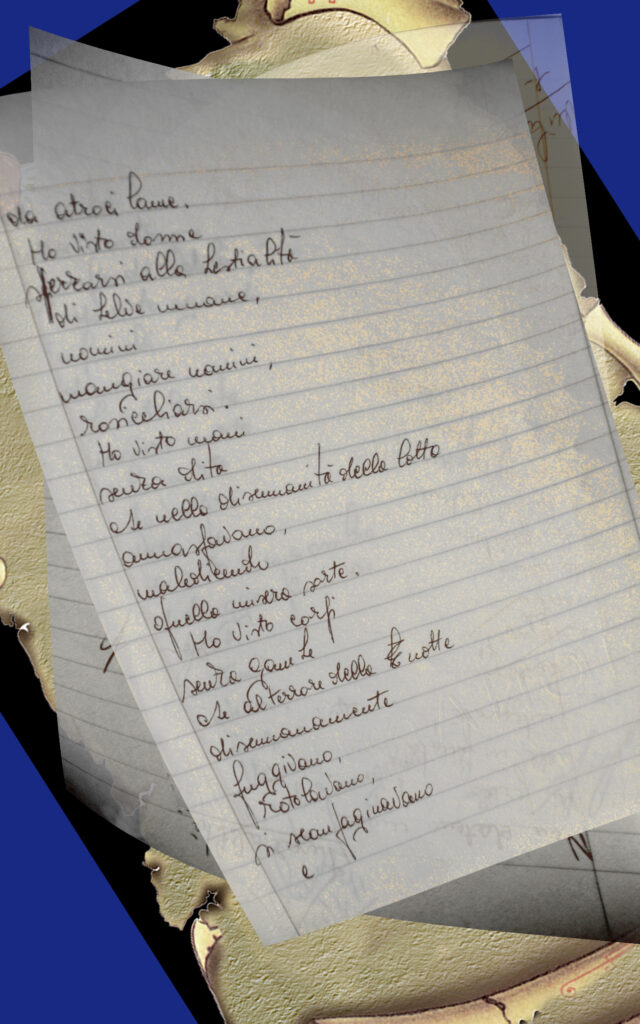 da atroci lame.
Ho visto donne
sferrarsi alla bestialità
di belve umane,
uomini
mangiare uomini,
rosicchiarsi.
Ho visto mani
senza dita
che nella disumanità della lotta
annaspavano,
maledicendo
quella misera sorte.
Ho visto corpi
senza gambe
che al terrore della notte
disumanamente
fuggivano,
rotolavano,
si scompaginavano
e